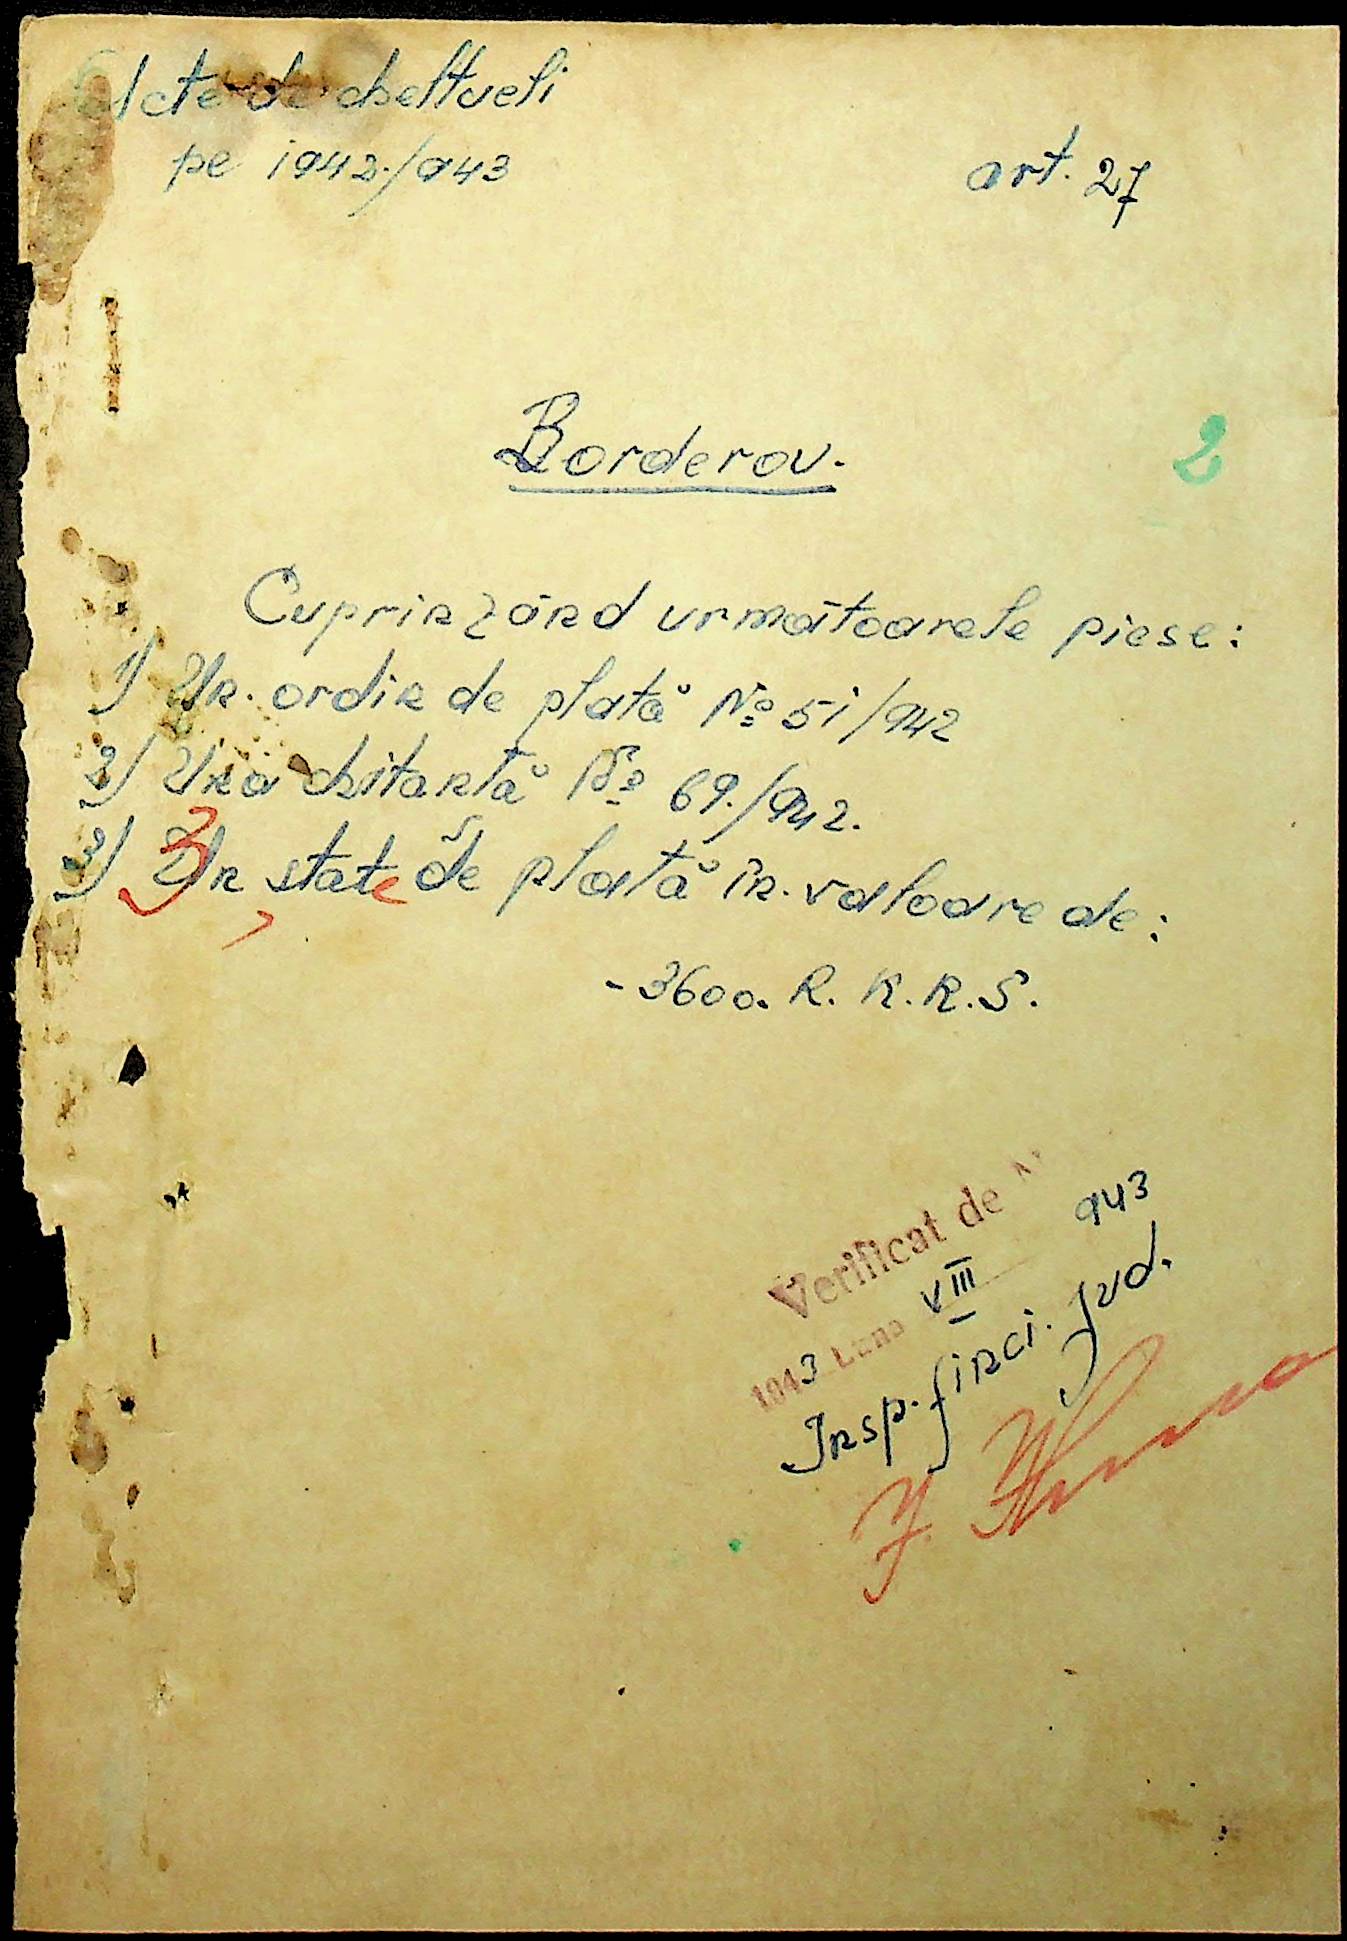 Acte de cheltueli
pe 1942./943
art. 27
Borderou.
2
Cuprinzând următoarele piese:
1) Un. ordin de plată No 51/942
2) Una chitanță No 69./942.
3) 3 state de plată în. valoare de:
- 3600. R. K. K. S.
Verificat de
943
1943 Luna VIII
Insp. finci. Jud.